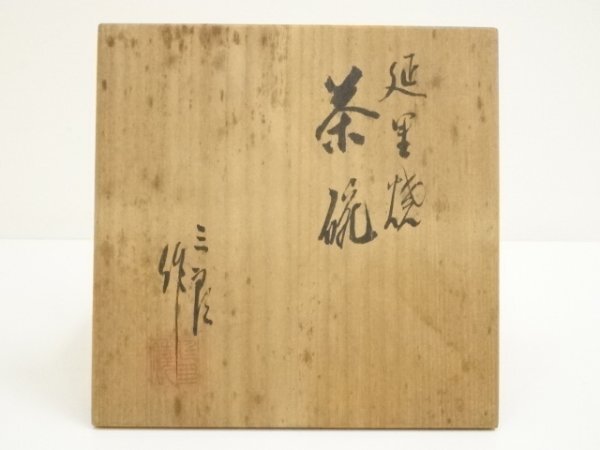 延里焼
茶碗
三良
作